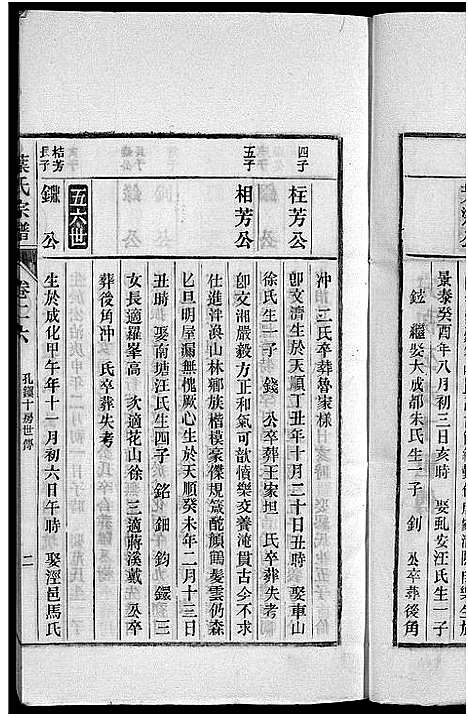 景泰癸酉年八月初三日亥時 娶虬安汪氏生一子
鉉 繼娶大成都朱氏生一子 釗 公卒葬後角
冲 二氏卒葬魯家様
四子
枉芳公
卽文濟生於天順丁丑年十月二十日丑時 娶車山
徐氏生一子 錢 公卒葬王家坦 氏卒葬失考
五子
相芳公
卽文湘嚴毅方正和氣可歆憤樂交養淹貫古今不求
仕進泮渙山林鄉族楷模豪傑規箴酡顏鶴髮雲仍森
匕旦明屋漏無愧厥心生於天順癸未年二月十三日
丑時 娶南塘汪氏生四子 銘 鈿 鈞 鑁 三
女長適羅峯高 次適花山徐 三適蔣溪戴 公卒
葬後角冲 氏卒葬失考
五六世
桔芳
長子
鏸公
生於成化甲午年十一月初六日午時 娶涇邑馬氏
葉氏宗譜
卷二六
孔鎮十房世傳
二